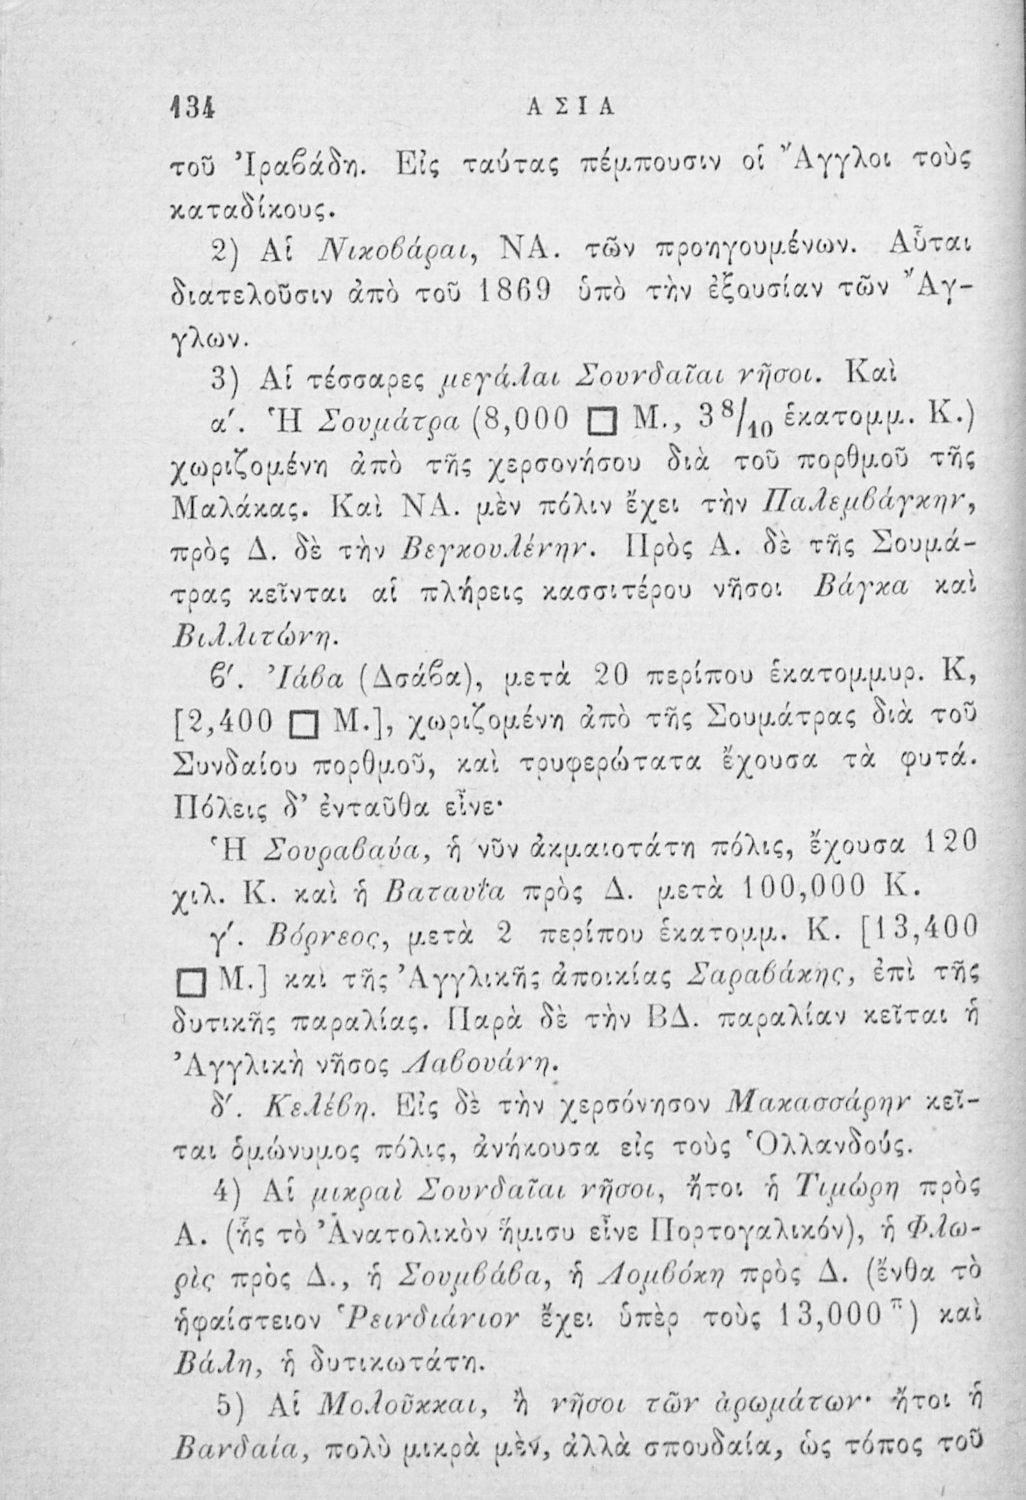 134 ΑΣΙΑ
τοῦ Ἰραβάδη. Εἰς ταύτας πέμπουσιν οἱ Ἄγγλοι τοὺς
καταδίκους.
2) Αἱ Νικοβάραι, ΝΑ. τῶν προηγουμένων. Αὗται
διατελοῦσιν ἀπὸ τοῦ 1869 ὑπὸ τὴν ἐξουσίαν τῶν Ἄγ-
γλων.
3) Αἱ τέσσαρες μεγάλαι Σουνδαῖαι νῆσοι. Καὶ
α'. Ἡ Σουμάτρα (8,000 □ Μ., 3 8/10 ἑκατομμ. Κ.)
χωριζομένη ἀπὸ τῆς χερσονήσου διὰ τοῦ πορθμοῦ τῆς
Μαλάκας. Καὶ ΝΑ. μὲν πόλιν ἔχει τὴν Παλεμβάγκην,
πρὸς Δ. δὲ τὴν Βεγκουλένην. Πρὸς Α. δὲ τῆς Σουμά-
τρας κεῖνται αἱ πλήρεις κασσιτέρου νῆσοι Βάγκα καὶ
Βιλλιτώνη.
ϐ'. Ἰάβα (Δσάβα), μετὰ 20 περίπου ἑκατομμυρ. Κ,
[2,400 □ Μ.], χωριζομένη ἀπὸ τῆς Σουμάτρας διὰ τοῦ
Συνδαίου πορθμοῦ, καὶ τρυφερώτατα ἔχουσα τὰ φυτά.
Πόλεις δ' ἐνταῦθα εἶνε·
Ἡ Σουραβαύα, ἡ νῦν ἀκμαιοτάτη πόλις, ἔχουσα 120
χιλ. Κ. καὶ ἡ Βαταυΐα πρὸς Δ. μετὰ 100,000 Κ.
γ'. Βόρνεος, μετὰ 2 περίπου ἑκατομμ. Κ. [13,400
□ Μ.] καὶ τῆς Ἀγγλικῆς ἀποικίας Σαραβάκης, ἐπὶ τῆς
δυτικῆς παραλίας. Παρὰ δὲ τὴν ΒΔ. παραλίαν κεῖται ἡ
Ἀγγλικὴ νῆσος Λαβουάνη.
δ'. Κελέβη. Εἰς δὲ τὴν χερσόνησον Μακασσάρην κεῖ-
ται ὁμώνυμος πόλις, ἀνήκουσα εἰς τοὺς Ὁλλανδούς.
4) Αἱ μικραὶ Σουνδαῖαι νῆσοι, ἤτοι ἡ Τιμώρη πρὸς
Α. (ἧς τὸ Ἀνατολικὸν ἥμισυ εἶνε Πορτογαλικόν), ἡ Φλω-
ρὶς πρὸς Δ., ἡ Σουμβάβα, ἡ Λομβόκη πρὸς Δ. (ἔνθα τὸ
ἡφαίστειον Ῥεινδιάνιον ἔχει ὑπὲρ τοὺς 13,000 π) καὶ
Βάλη, ἡ δυτικωτάτη.
5) Αἱ Μολοῦκκαι, ἢ νῆσοι τῶν ἀρωμάτων· ἤτοι ἡ
Βανδαία, πολὺ μικρὰ μὲν, ἀλλὰ σπουδαία, ὡς τόπος τοῦ